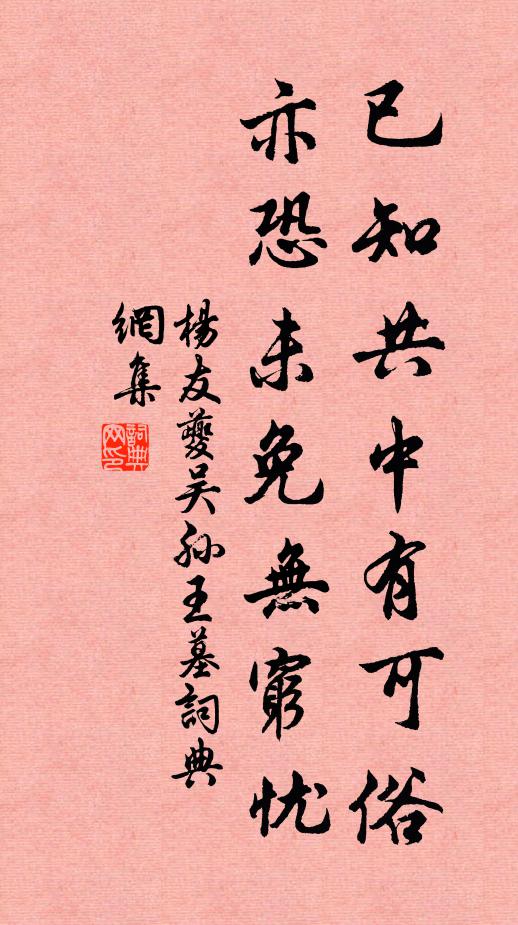 已知共中有可俗
亦恐未免無窮忧
楊友夔吴孫王墓詞典
網集
詞典
网印